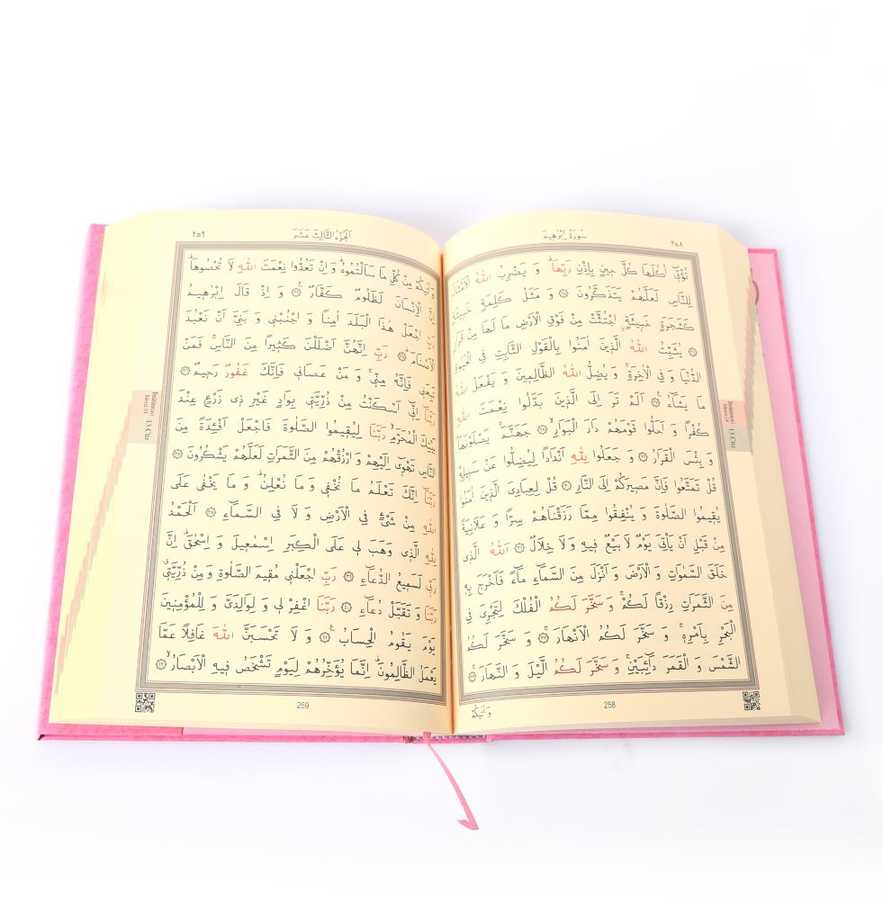 سُورَةُ اِبْرٰهِيمَ
٢٥٨
تُؤْتِٓي اُكُلَهَا كُلَّ حِينٍ بِاِذْنِ رَبِّهَاۜ وَ يَضْرِبُ اللّٰهُ الْاَمْثَالَ
لِلنَّاسِ لَعَلَّهُمْ يَتَذَكَّرُونَ ﴿٢٥﴾ وَ مَثَلُ كَلِمَةٍ خَبِيثَةٍ
كَشَجَرَةٍ خَبِيثَةٍ اجْتُثَّتْ مِنْ فَوْقِ الْاَرْضِ مَا لَهَا مِنْ قَرَارٍ
﴿٢٦﴾ يُثَبِّتُ اللّٰهُ الَّذِينَ اٰمَنُوا بِالْقَوْلِ الثَّابِتِ فِي الْحَيٰوةِ
الدُّنْيَا وَ فِي الْاٰخِرَةِۚ وَ يُضِلُّ اللّٰهُ الظَّالِمِينَ وَ يَفْعَلُ اللّٰهُ
مَا يَشَٓاءُ ﴿٢٧﴾ اَلَمْ تَرَ اِلَى الَّذِينَ بَدَّلُوا نِعْمَتَ اللّٰهِ
كُفْرًا وَ اَحَلُّوا قَوْمَهُمْ دَارَ الْبَوَارِۙ ﴿٢٨﴾ جَهَنَّمَۚ يَصْلَوْنَهَاۜ
وَ بِئْسَ الْقَرَارُ ﴿٢٩﴾ وَ جَعَلُوا لِلّٰهِ اَنْدَادًا لِيُضِلُّوا عَنْ سَبِيلِهِۜ
قُلْ تَمَتَّعُوا فَاِنَّ مَصِيرَكُمْ اِلَى النَّارِ ﴿٣٠﴾ قُلْ لِعِبَادِيَ الَّذِينَ اٰمَنُوا
يُقِيمُوا الصَّلٰوةَ وَ يُنْفِقُوا مِمَّا رَزَقْنَاهُمْ سِرًّا وَ عَلَانِيَةً
مِنْ قَبْلِ اَنْ يَأْتِيَ يَوْمٌ لَا بَيْعٌ فِيهِ وَ لَا خِلَالٌ ﴿٣١﴾ اَللّٰهُ الَّذِي
خَلَقَ السَّمٰوَاتِ وَ الْاَرْضَ وَ اَنْزَلَ مِنَ السَّمَٓاءِ مَٓاءً فَاَخْرَجَ بِهِ
مِنَ الثَّمَرَاتِ رِزْقًا لَكُمْۚ وَ سَخَّرَ لَكُمُ الْفُلْكَ لِتَجْرِيَ فِي
الْبَحْرِ بِاَمْرِهِۚ وَ سَخَّرَ لَكُمُ الْاَنْهَارَۚ ﴿٣٢﴾ وَ سَخَّرَ لَكُمُ
الشَّمْسَ وَ الْقَمَرَ دَٓائِبَيْنِۚ وَ سَخَّرَ لَكُمُ الَّيْلَ وَ النَّهَارَۚ ﴿٣٣﴾
258
وَ اٰتٰيكُمْ
13.Cüz
اَلْجُزْءُ الثَّالِثَ عَشَرَ
٢٥٩
وَ اٰتٰيكُمْ مِنْ كُلِّ مَا سَاَلْتُمُوهُۜ وَ اِنْ تَعُدُّوا نِعْمَتَ اللّٰهِ لَا تُحْصُوهَاۜ
اِنَّ الْاِنْسَانَ لَظَلُومٌ كَفَّارٌ ﴿٣٤﴾ وَ اِذْ قَالَ اِبْرٰهِيمُ
رَبِّ اجْعَلْ هٰذَا الْبَلَدَ اٰمِنًا وَ اجْنُبْنِي وَ بَنِيَّ اَنْ نَعْبُدَ
الْاَصْنَامَۜ ﴿٣٥﴾ رَبِّ اِنَّهُنَّ اَضْلَلْنَ كَثِيرًا مِنَ النَّاسِۚ فَمَنْ
تَبِعَنِي فَاِنَّهُ مِنِّيۚ وَ مَنْ عَصَانِي فَاِنَّكَ غَفُورٌ رَحِيمٌ ﴿٣٦﴾
رَبَّنَٓا اِنِّٓي اَسْكَنْتُ مِنْ ذُرِّيَّتِي بِوَادٍ غَيْرِ ذِي زَرْعٍ عِنْدَ
بَيْتِكَ الْمُحَرَّمِۙ رَبَّنَا لِيُقِيمُوا الصَّلٰوةَ فَاجْعَلْ اَفْئِدَةً مِنَ
النَّاسِ تَهْوِٓي اِلَيْهِمْ وَ ارْزُقْهُمْ مِنَ الثَّمَرَاتِ لَعَلَّهُمْ يَشْكُرُونَ ﴿٣٧﴾
رَبَّنَٓا اِنَّكَ تَعْلَمُ مَا نُخْفِي وَ مَا نُعْلِنُۜ وَ مَا يَخْفٰى عَلَى
اللّٰهِ مِنْ شَيْءٍ فِي الْاَرْضِ وَ لَا فِي السَّمَٓاءِ ﴿٣٨﴾ اَلْحَمْدُ
لِلّٰهِ الَّذِي وَهَبَ لِي عَلَى الْكِبَرِ اِسْمٰعِيلَ وَ اِسْحٰقَۜ اِنَّ
رَبِّي لَسَمِيعُ الدُّعَٓاءِ ﴿٣٩﴾ رَبِّ اجْعَلْنِي مُقِيمَ الصَّلٰوةِ وَ مِنْ ذُرِّيَّتِيۗ
رَبَّنَا وَ تَقَبَّلْ دُعَٓاءِ ﴿٤٠﴾ رَبَّنَا اغْفِرْ لِي وَ لِوَالِدَيَّ وَ لِلْمُؤْمِنِينَ
يَوْمَ يَقُومُ الْحِسَابُ ﴿٤١﴾ وَ لَا تَحْسَبَنَّ اللّٰهَ غَافِلًا عَمَّا
يَعْمَلُ الظَّالِمُونَۜ اِنَّمَا يُؤَخِّرُهُمْ لِيَوْمٍ تَشْخَصُ فِيهِ الْاَبْصَارُۙ ﴿٤٢﴾
259
13.Cüz